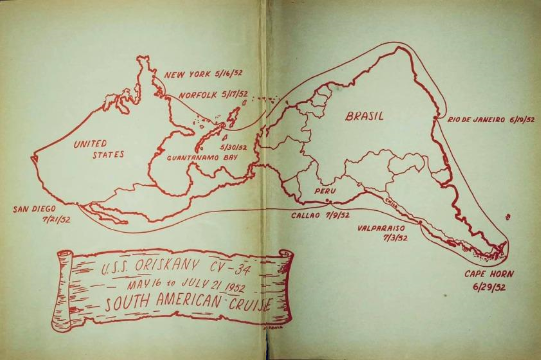 NEW YORK 5/16/52
NORFOLK 5/17/52
UNITED
STATES
5/30/52
GUANTANAMO BAY
BRASIL
RIO DE JANEIRO 6/19/52
SAN DIEGO
7/21/52
PERU
CALLAO 7/9/52
CHILE
VALPARAISO
7/3/52
CAPE HORN
6/29/52
U.S.S. ORISKANY CV-34
MAY 16 to JULY 21 1952
SOUTH AMERICAN CRUISE